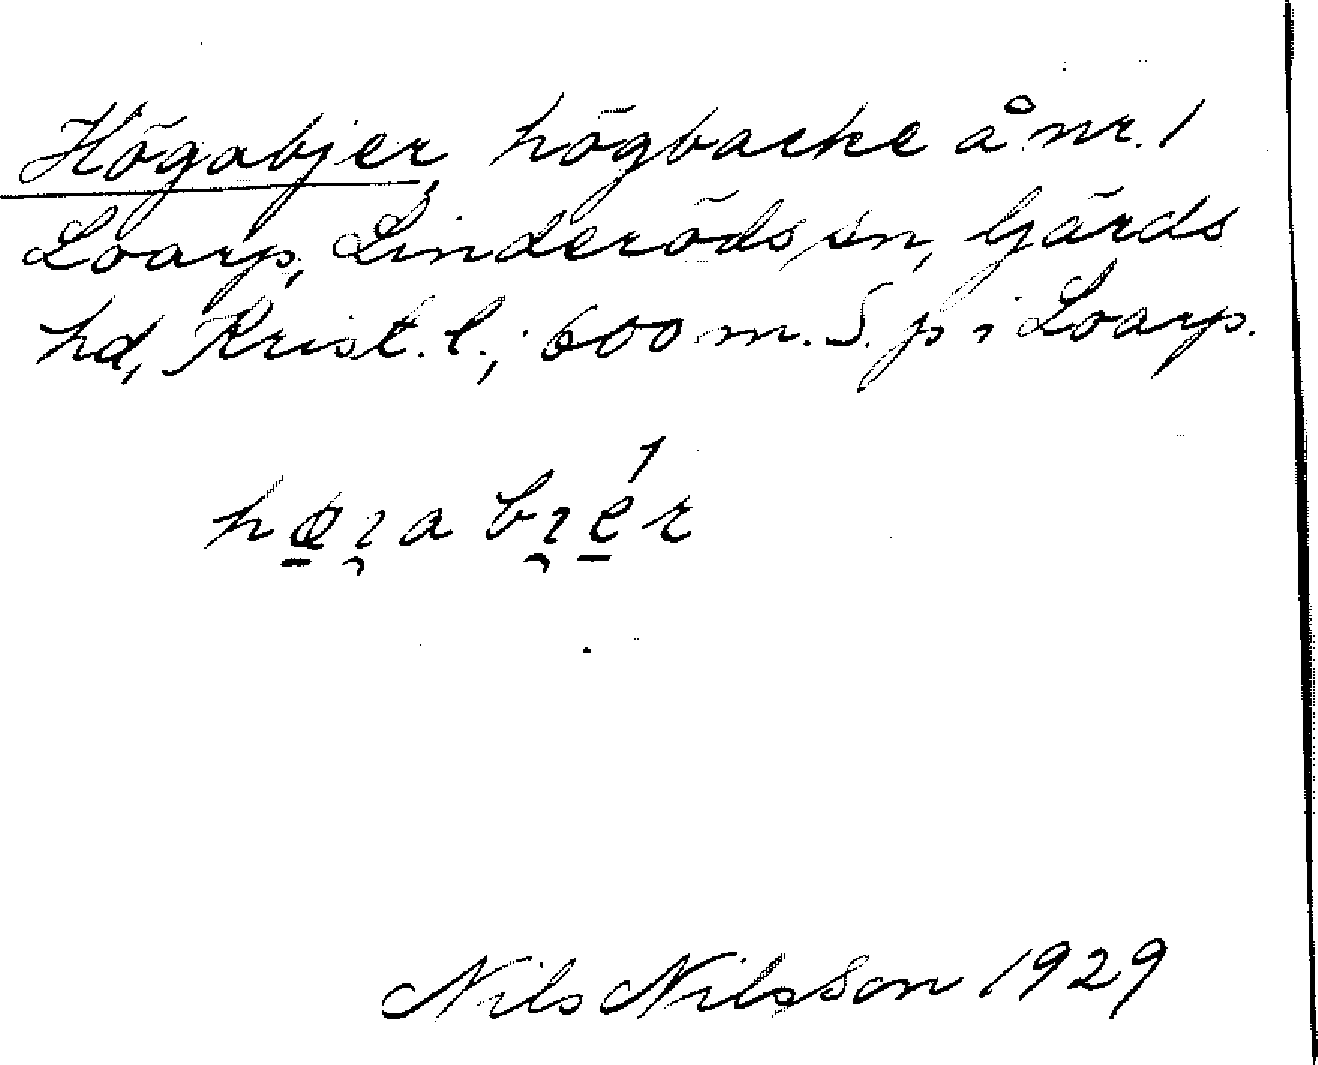 Högabjer, högbacke å nr. 1
Loarp, Linderöds sn, Gärds
hd, Krist. l.; 600 m. S. p i Loarp.
hø̱ı̯a bı̯é̱r
Nils Nilsson 1929